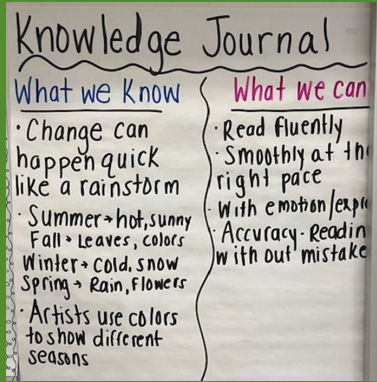 Knowledge Journal
What we Know
· Change can
happen quick
like a rainstorm
· Summer → hot, sunny
Fall → Leaves, colors
Winter → Cold, snow
Spring → Rain, Flowers
· Artists use colors
to show different
seasons
What we can
· Read fluently
· Smoothly at th
right pace
· With emotion/expre
· Accuracy - Readin
with out mistake